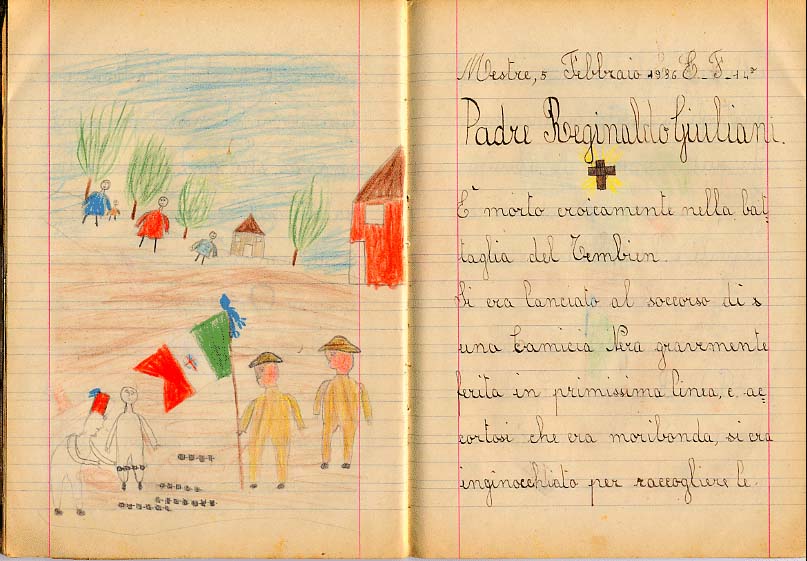 Mestre, 5 Febbraio 1936 E. F. 14°
Padre Reginaldo Giuliani.
E' morto eroicamente nella bat-
taglia del Tembien.
Si era lanciato al soccorso di s
una Camicia Nera gravemente
ferita in primissima linea, e, ac-
cortosi che era moribonda, si era
inginocchiato per raccogliere le